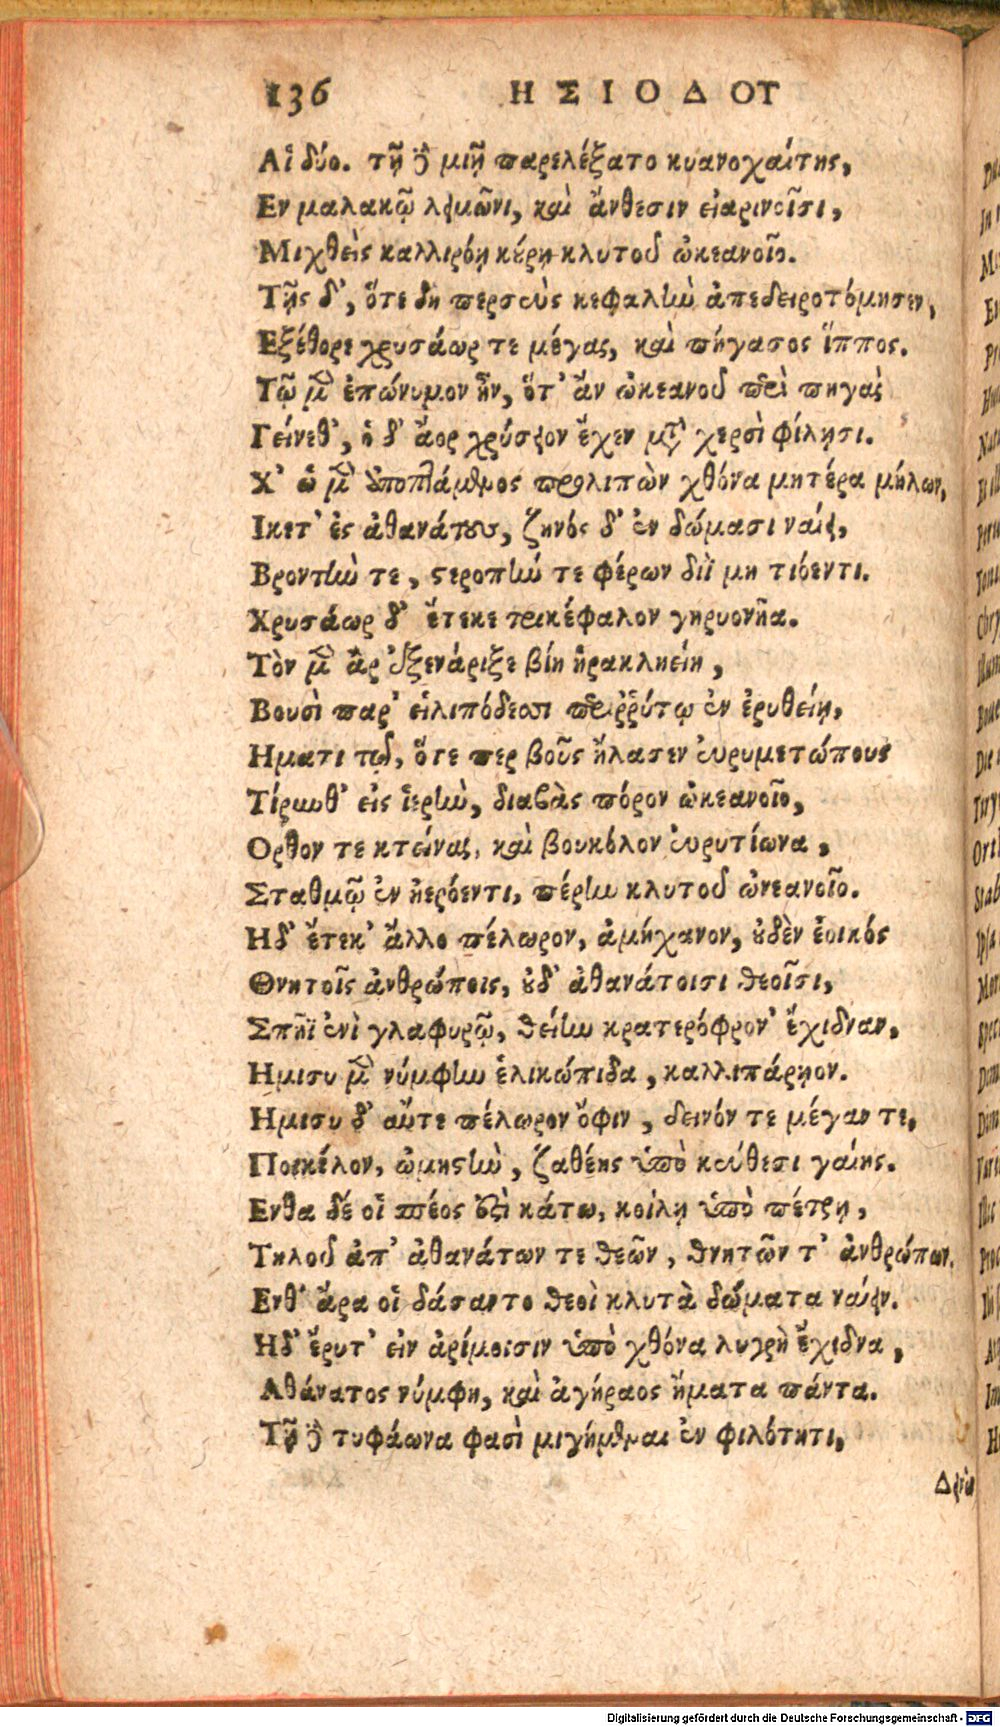 136 ΗΣΙΟΔΟΥ
Αἱ δύο. τῇ δὲ μιῇ παρελέξατο κυανοχαίτης,
Εν μαλακῷ λειμῶνι, καὶ ἄνθεσιν εἰαρινοῖσι,
Μιχθεὶς καλλιρόῃ κύρῃ κλυτοῦ ὠκεανοῖο.
Τῆς δ', ὅτε δὴ περσεὺς κεφαλὴν ἀπεδειροτόμησεν,
Εξέθορε χρυσάωρ τε μέγας, καὶ πήγασος ἵππος.
Τῷ μὲν ἐπώνυμον ἦν, ὅτ' ἂν ὠκεανοῦ περὶ πηγαὶ
Γείνεθ', ὁ δ' ἄορ χρύσειον ἔχεν μετὰ χερσὶ φίλῃσι.
Χ' ὡ μὲν ἀποπτάμενος προλιπὼν χθόνα μητέρα μήλων,
Ικετ' ἐς ἀθανάτους, ζηνὸς δ' ἐν δώμασι ναίει,
Βροντήν τε, στεροπήν τε φέρων διῒ μητιόεντι.
Χρυσάωρ δ' ἔτεκε τρικέφαλον γηρυονῆα.
Τὸν μὲν ἂρ ἐξενάριξε βίη ἡρακληείη,
Βουσὶ παρ' εἰλιπόδεσσι περιῤῥύτῳ ἐν ἐρυθείῃ,
Ηματι τῷ, ὅτε περ βοῦς ἤλασεν εὐρυμετώπους
Τίρυνθ' εἰς ἱερὴν, διαβὰς πόρον ὠκεανοῖο,
Ορθον τε κτείνας, καὶ βουκόλον εὐρυτίωνα,
Σταθμῷ ἐν ἠερόεντι, πέρην κλυτοῦ ὠνεανοῖο.
Ηδ' ἔτεκ' ἄλλο πέλωρον, ἀμήχανον, οὐδὲν ἐοικὸς
Θνητοῖς ἀνθρώποις, οὐδ' ἀθανάτοισι θεοῖσι,
Σπῆϊ ἐνὶ γλαφυρῷ, θείην κρατερόφρον' ἔχιδναν,
Ημισυ μὲν νύμφην ἑλικώπιδα, καλλιπάρῃον.
Ημισυ δ' αὖτε πέλωρον ὄφιν, δεινόν τε μέγαν τε,
Ποικίλον, ὠμηστὴν, ζαθέης ὑπὸ κεύθεσι γαίης.
Ενθα δέ οἱ σπέος ἐστὶ κάτω, κοίλῃ ὑπὸ πέτρῃ,
Τηλοῦ ἀπ' ἀθανάτων τε θεῶν, θνητῶν τ' ἀνθρώπων.
Ενθ' ἄρα οἱ δάσαντο θεοὶ κλυτὰ δώματα ναίειν.
Ηδ' ἔρυτ' εἰν ἀρίμοισιν ὑπὸ χθόνα λυγρὴ ἔχιδνα,
Αθάνατος νύμφη, καὶ ἀγήραος ἤματα πάντα.
Τῇ δὲ τυφάονα φασὶ μιγήμεναι ἐν φιλότητι,
Δεινὸν
Digitalisierung gefördert durch die Deutsche Forschungsgemeinschaft - DFG